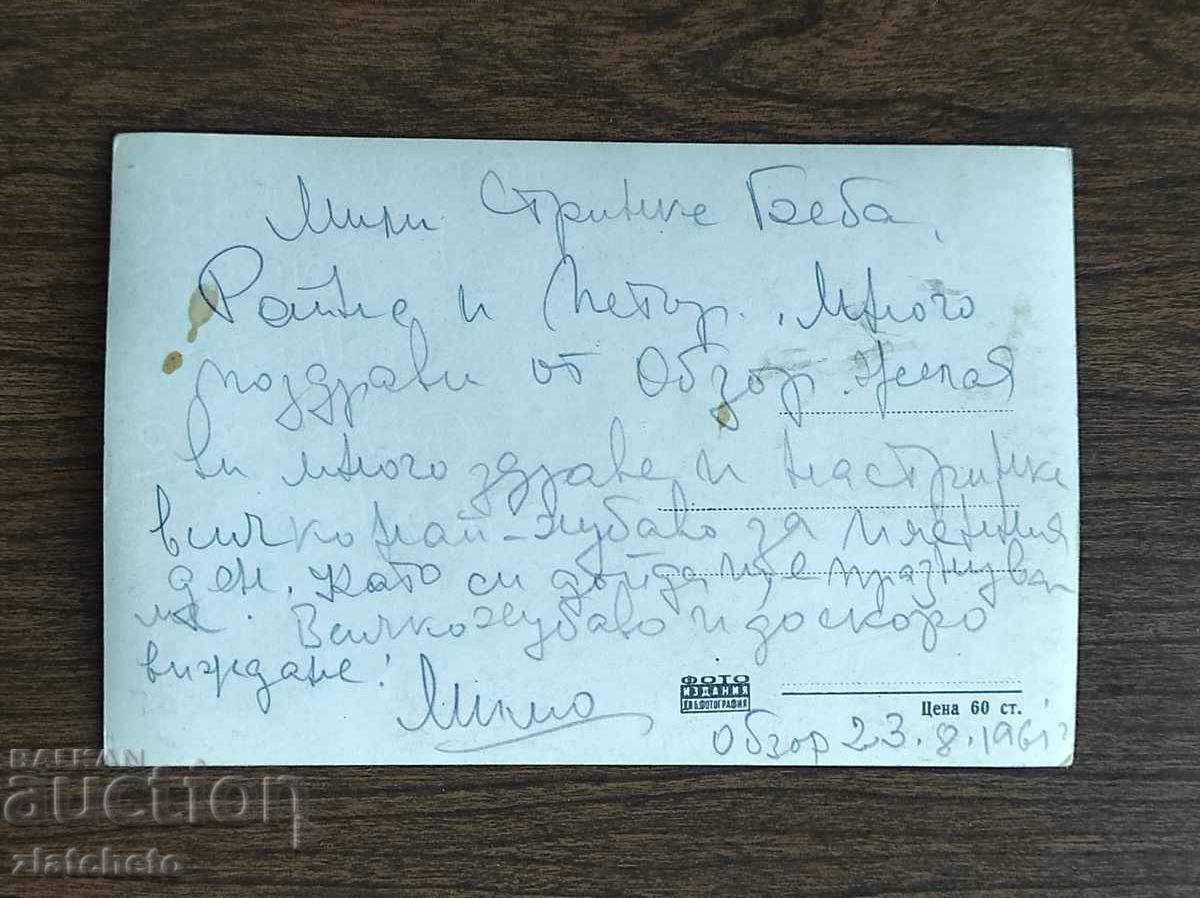 Мили Стринке Беба,
Райна и Петър. Много
поздрави от Обзор. Желая
ви много здраве и на стринке
всичко най-хубаво за имения
ден. Като си дойда ще празнува
ме. Всичко хубаво и до скоро
виждане!
Милю
ФОТО
ИЗДАНИЯ
ДП Б. ФОТОГРАФИЯ
Цена 60 ст.
Обзор 23.8.1961
БАЛКАН
auction
zlatcheto